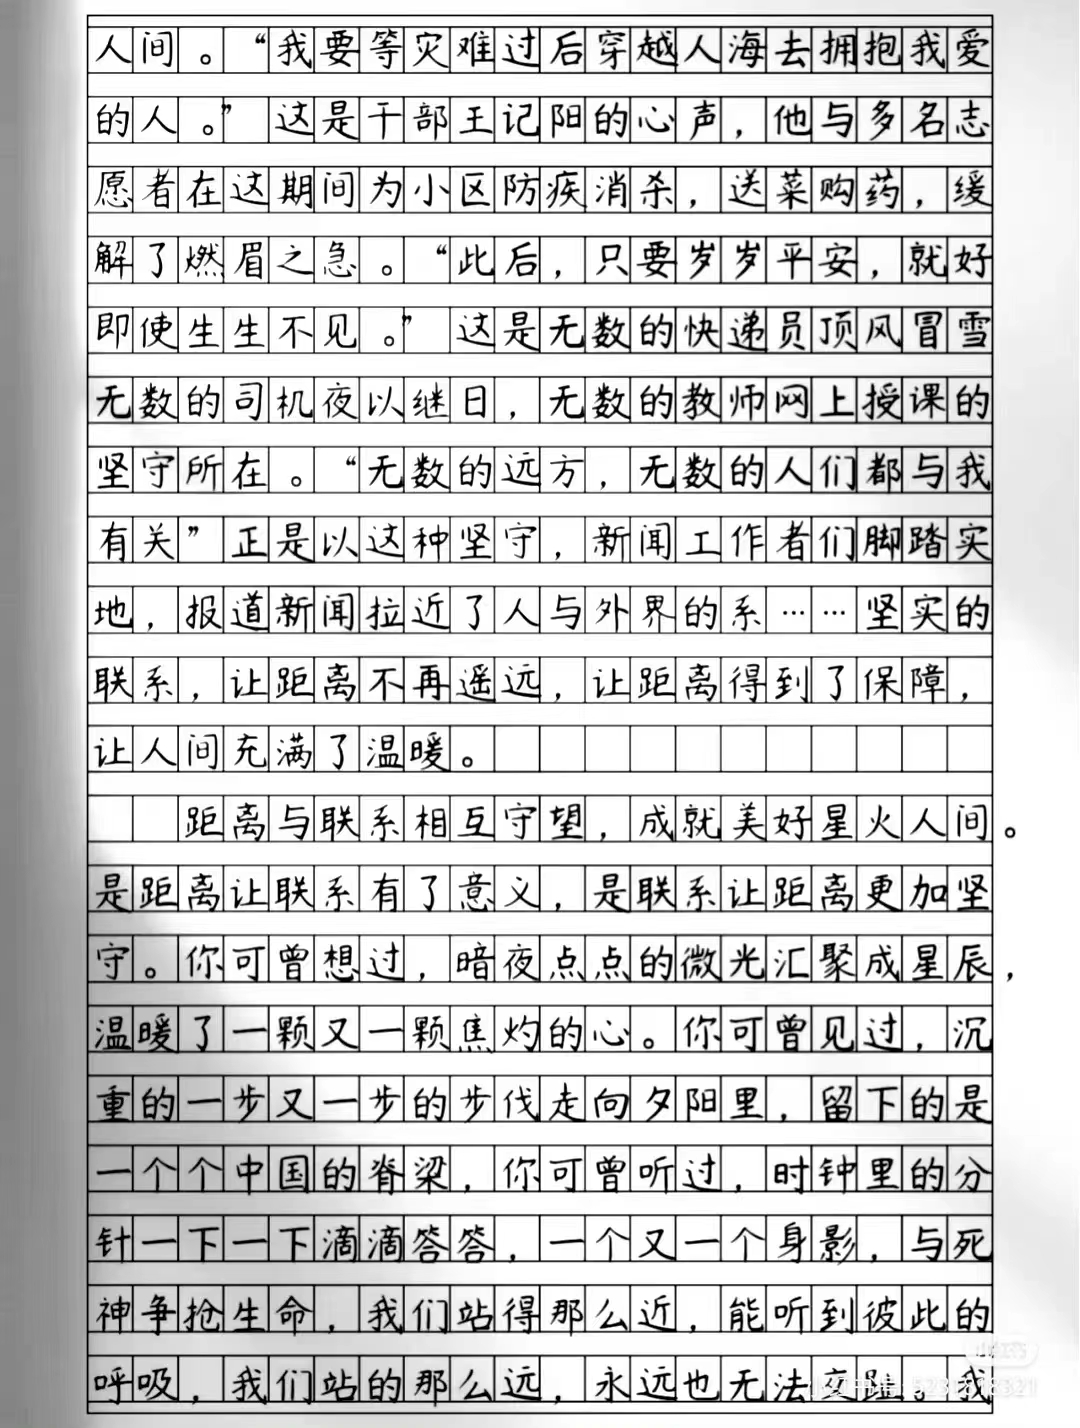 人间。“我要等灾难过后穿越人海去拥抱我爱
的人。”这是干部王记阳的心声，他与多名志
愿者在这期间为小区防疾消杀，送菜购药，缓
解了燃眉之急。“此后，只要岁岁平安，就好
即使生生不见。”这是无数的快递员顶风冒雪
无数的司机夜以继日，无数的教师网上授课的
坚守所在。“无数的远方，无数的人们都与我
有关”正是以这种坚守，新闻工作者们脚踏实
地，报道新闻拉近了人与外界的系……坚实的
联系，让距离不再遥远，让距离得到了保障，
让人间充满了温暖。
距离与联系相互守望，成就美好星火人间。
是距离让联系有了意义，是联系让距离更加坚
守。你可曾想过，暗夜点点的微光汇聚成星辰，
温暖了一颗又一颗焦灼的心。你可曾见过，沉
重的一步又一步的步伐走向夕阳里，留下的是
一个个中国的脊梁，你可曾听过，时钟里的分
针一下一下滴滴答答，一个又一个身影，与死
神争抢生命，我们站得那么近，能听到彼此的
呼吸，我们站的那么远，永远也无法交趾。我
小红书